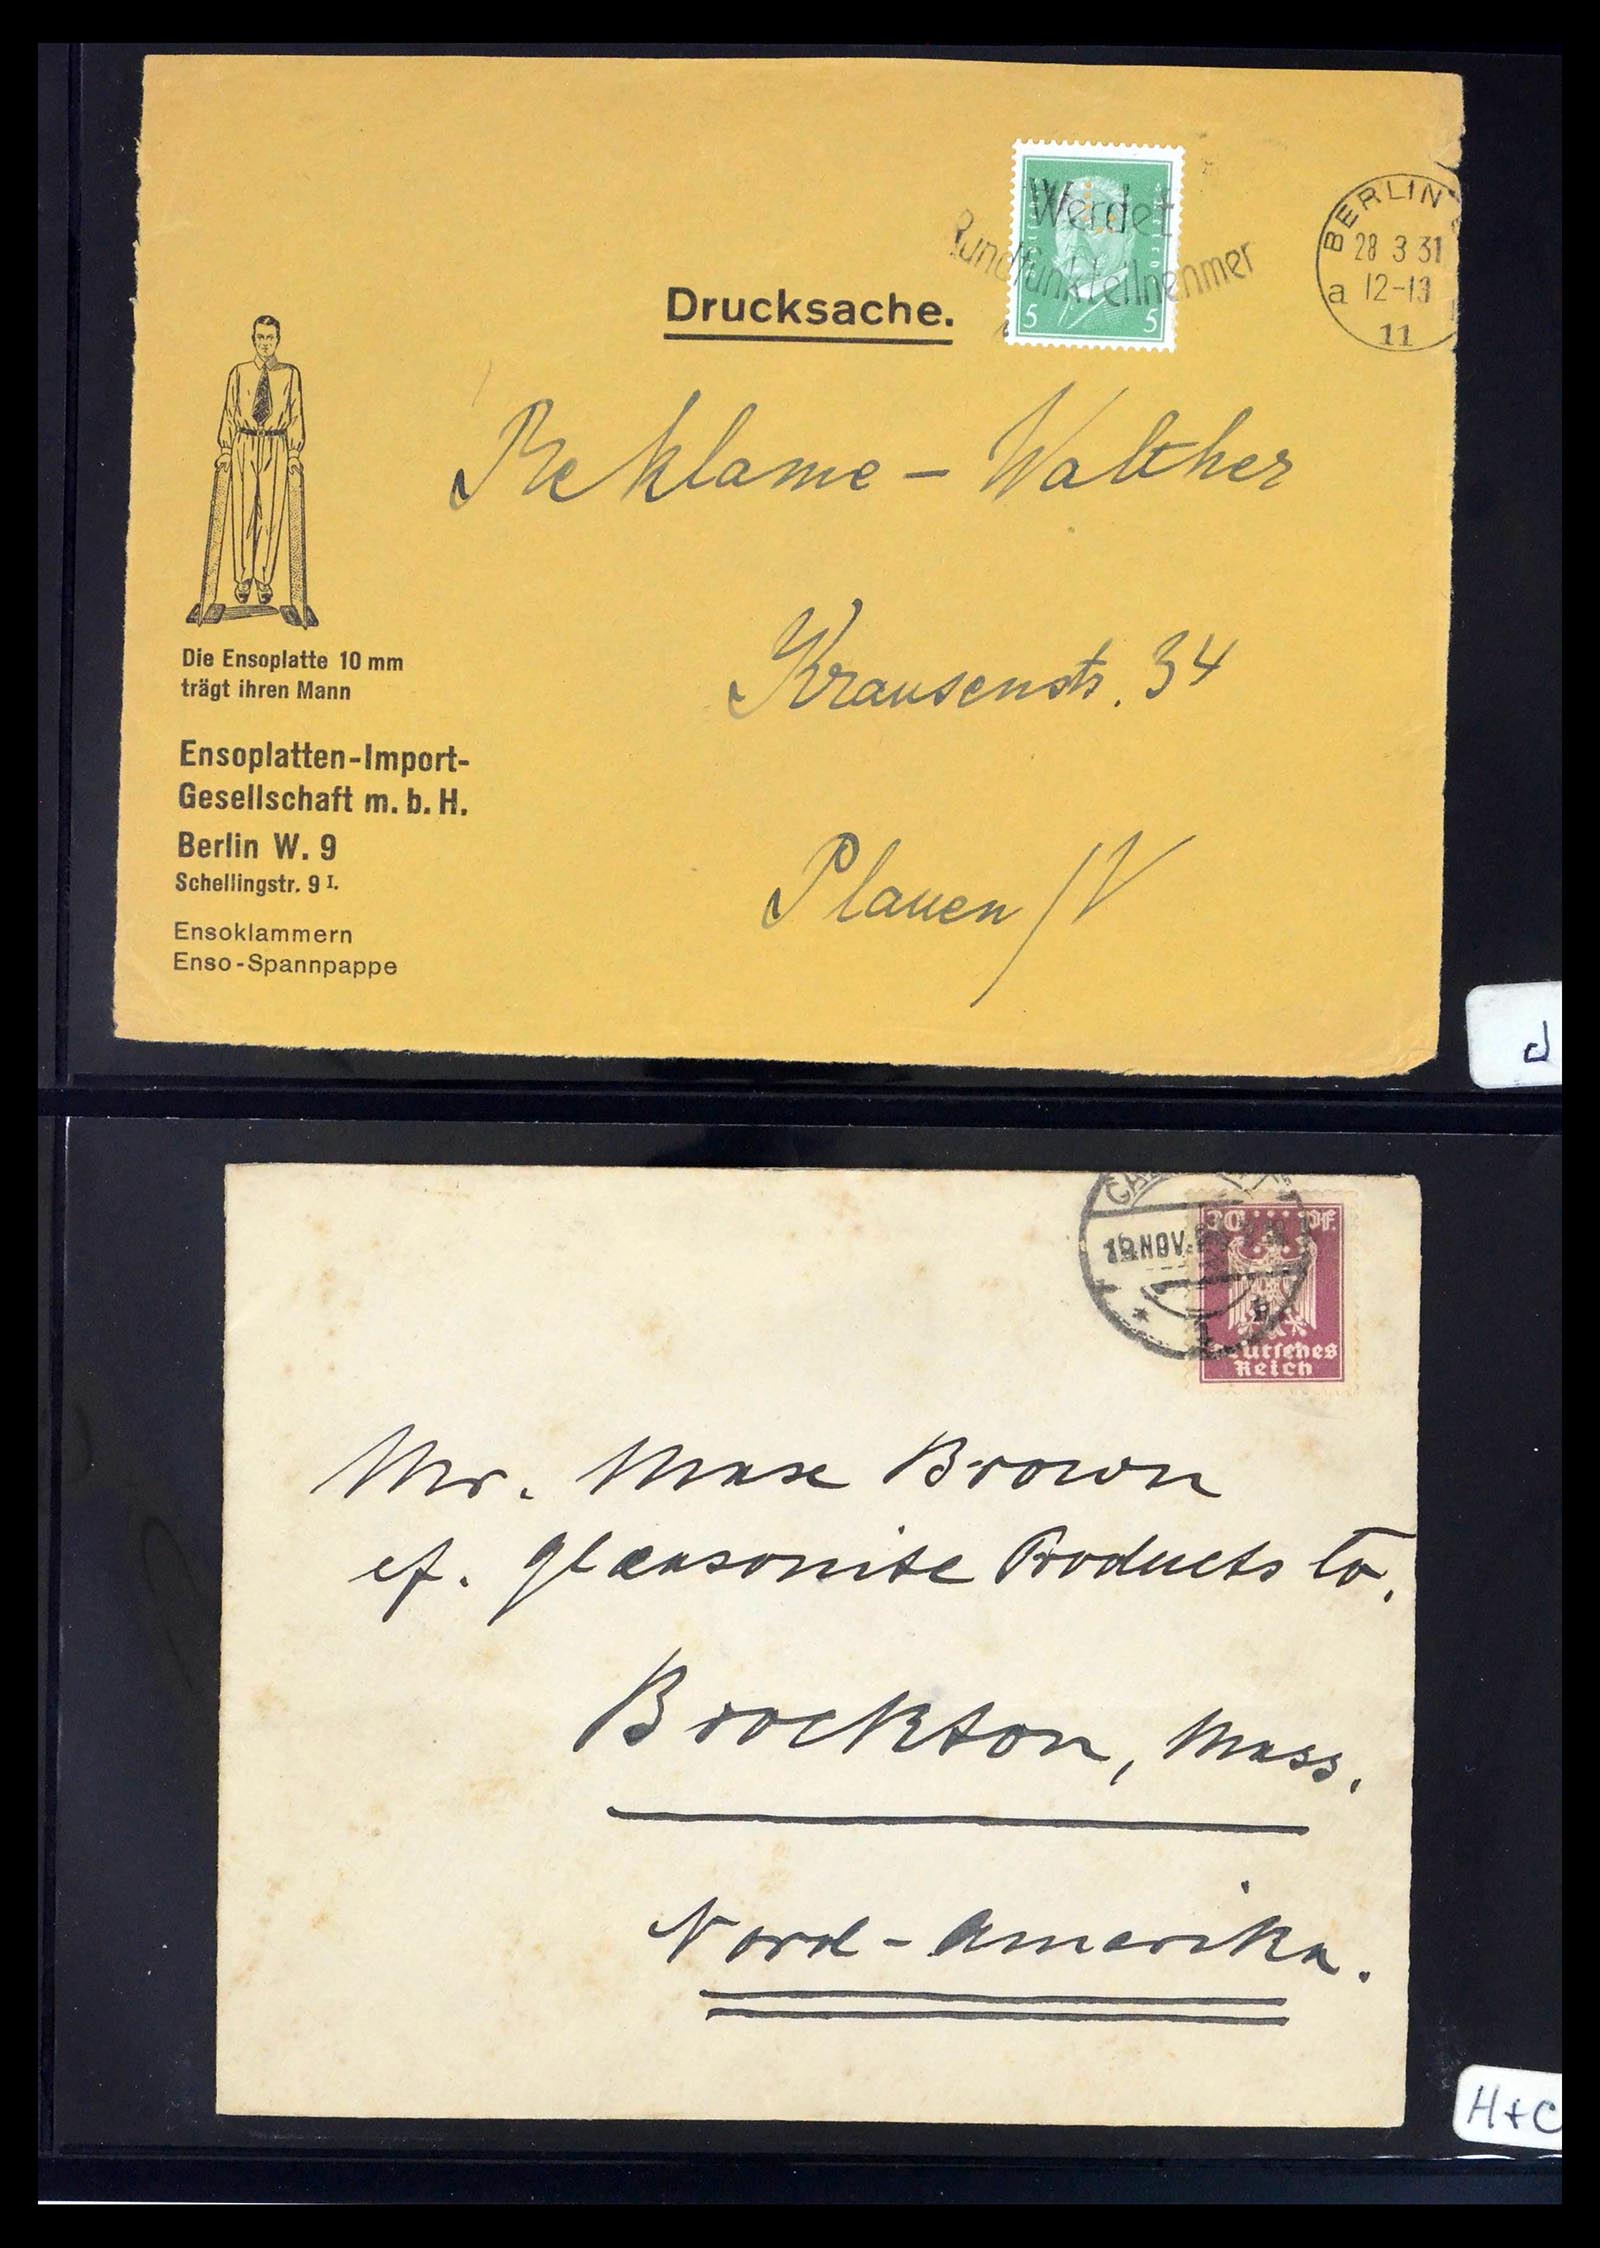 Werdet
Rundfunkteilnehmer
BERLIN
28 3 31
a 12-13
11
5 5
Drucksache.
Reklame - Walther
Krausenstr. 34
Plauen / V
Die Ensoplatte 10 mm
trägt ihren Mann
Ensoplatten-Import-
Gesellschaft m. b. H.
Berlin W. 9
Schellingstr. 9 I.
Ensoklammern
Enso-Spannpappe
d
30 Pf.
19. NOV.
Deutsches
Reich
Mr. Brown
Products Co.
Brockton, Mass.
Nord-Amerika.
H+C